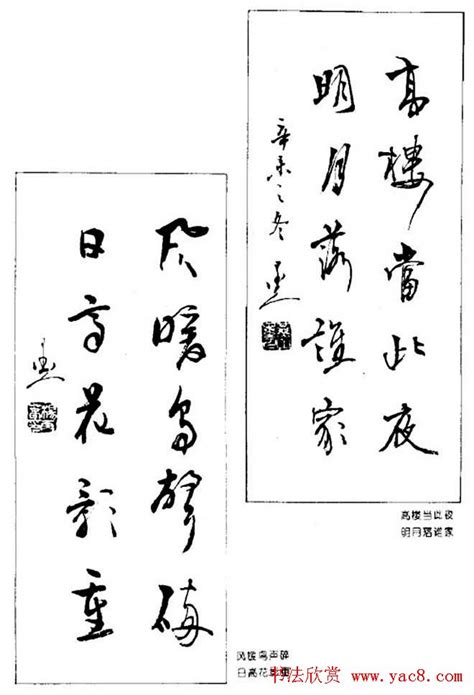 高樓當此夜
明月落誰家
辛未之冬 墨
高楼当此夜
明月落谁家
风暖鸟聲碎
日高花影重
墨
风暖鸟声碎
日高花影重
书法欣赏 www.yac8.com